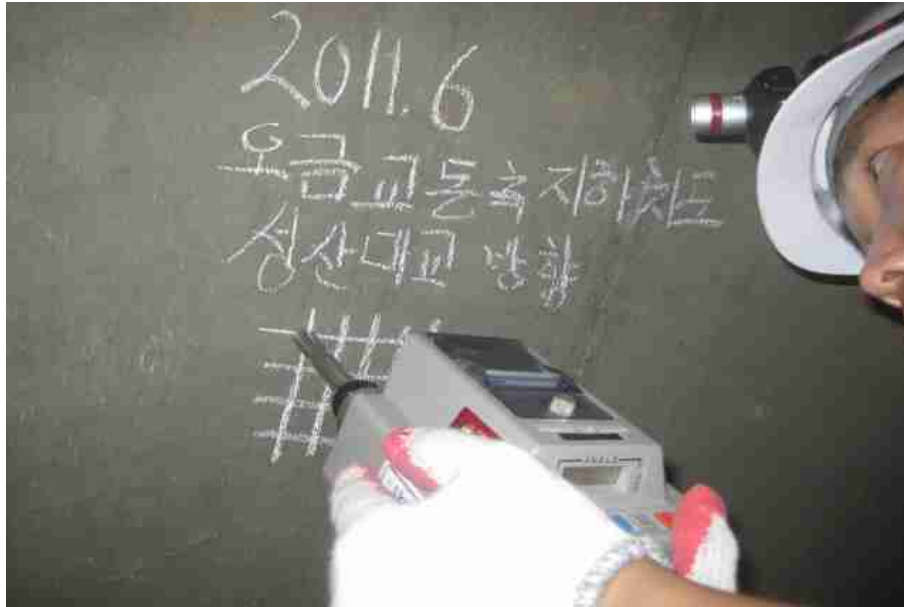 2011.6
오금교동측지하차도
성산대교 방향
ANGLE